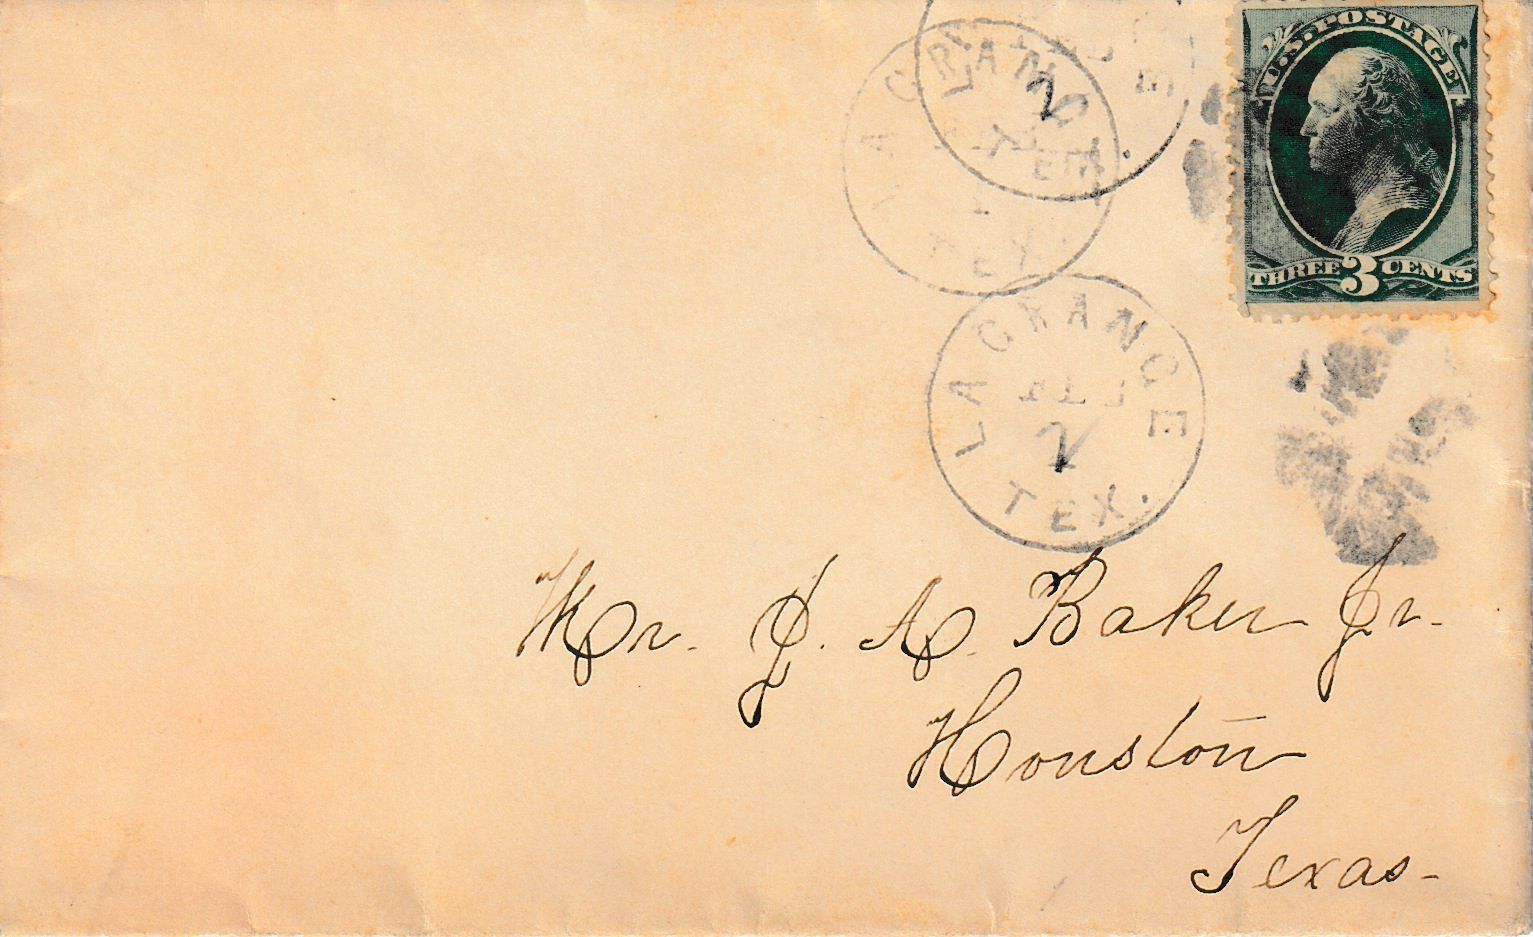 U.S. POSTAGE
THREE 3 CENTS
LA GRANGE
TEX.
LA GRANGE
2
TEX.
LA GRANGE
2
TEX.
Mr. J. A. Baker Jr.
Houston
Texas-